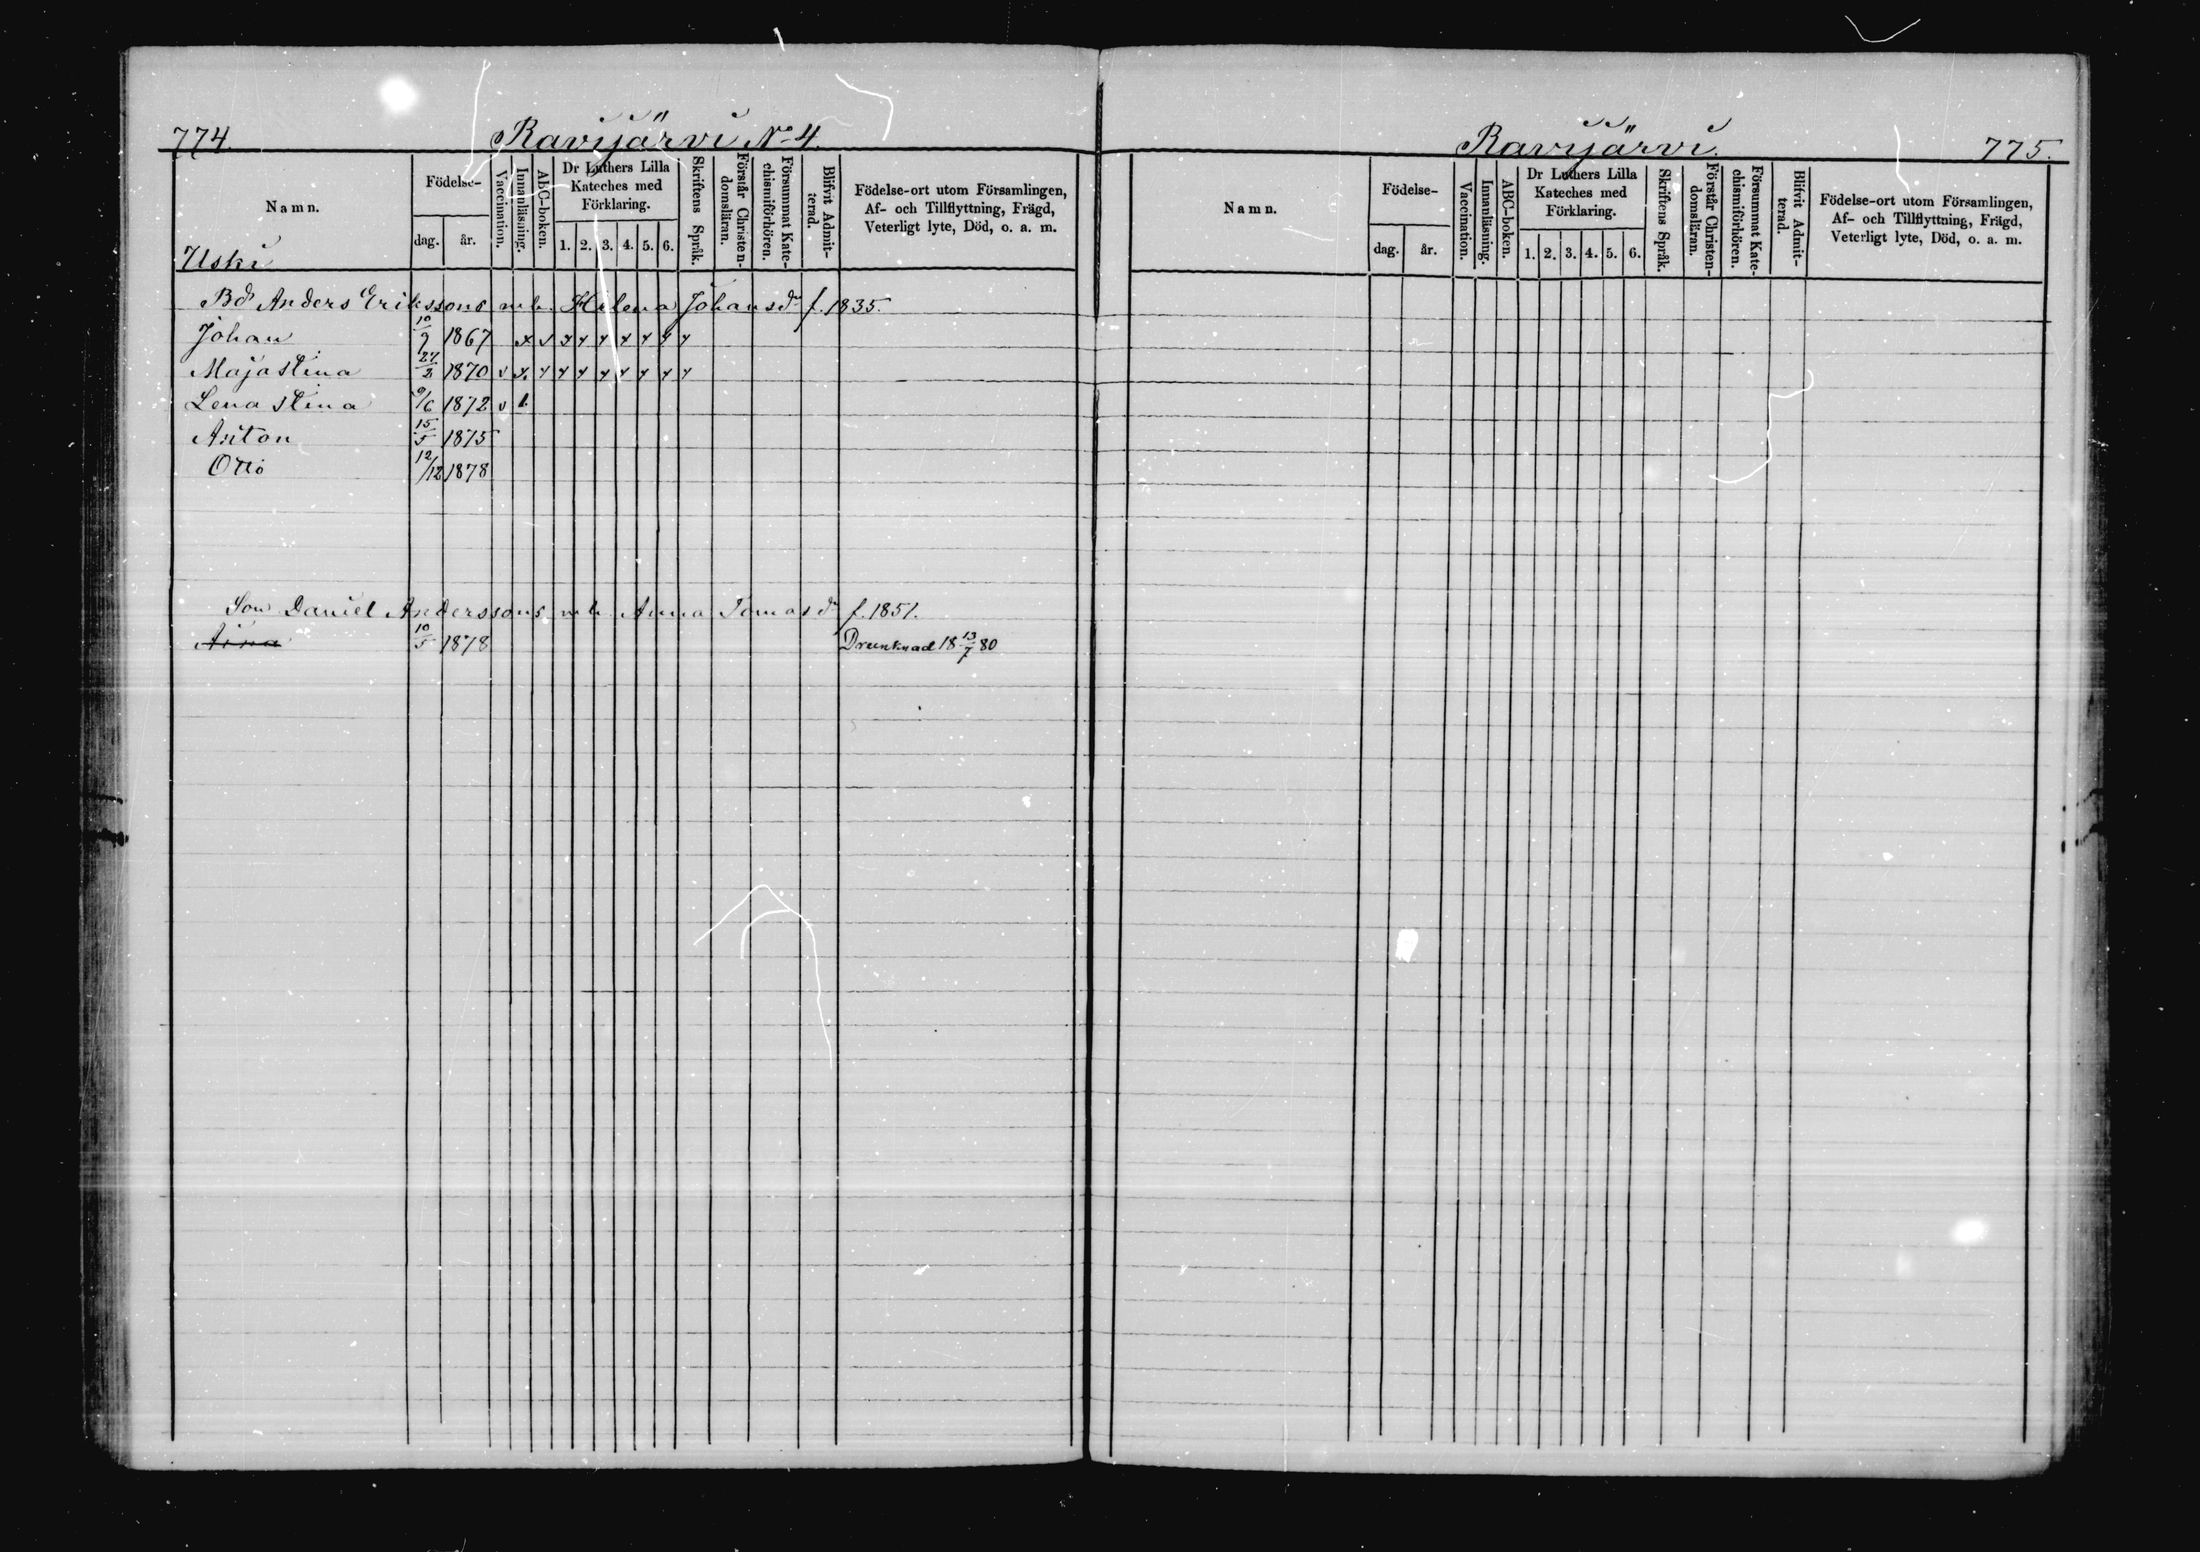 774.
Ravijärvi No 4.
Namn.
Födelse-
dag.
år.
Vaccination.
Innanläsning.
ABC-boken.
Dr Luthers Lilla
Kateches med
Förklaring.
1. 2. 3. 4. 5. 6.
Skriftens Språk.
Förstår Christen-
domsläran.
Försummat Kate-
chismiförhören.
Blifvit Admit-
terad.
Födelse-ort utom Församlingen,
Af- och Tillflyttning, Frägd,
Veterligt lyte, Död, o. a. m.
Uski
Bd Anders Erikssons m. h. Helena Johansdr f. 1835.
Johan 10/9 1867
Majastina 27/2 1870
Lena Stina 9/6 1872
Anton 15/5 1875
Otto 12/12 1878
Son Daniel Anderssons m. h. Anna Tomasdr f. 1851.
Aina 10/5 1878 Drunknad 18 13/7 80
Ravijärvi.
775.
Namn.
Födelse-
dag.
år.
Vaccination.
Innanläsning.
ABC-boken.
Dr Luthers Lilla
Kateches med
Förklaring.
1. 2. 3. 4. 5. 6.
Skriftens Språk.
Förstår Christen-
domsläran.
Försummat Kate-
chismiförhören.
Blifvit Admit-
terad.
Födelse-ort utom Församlingen,
Af- och Tillflyttning, Frägd,
Veterligt lyte, Död, o. a. m.